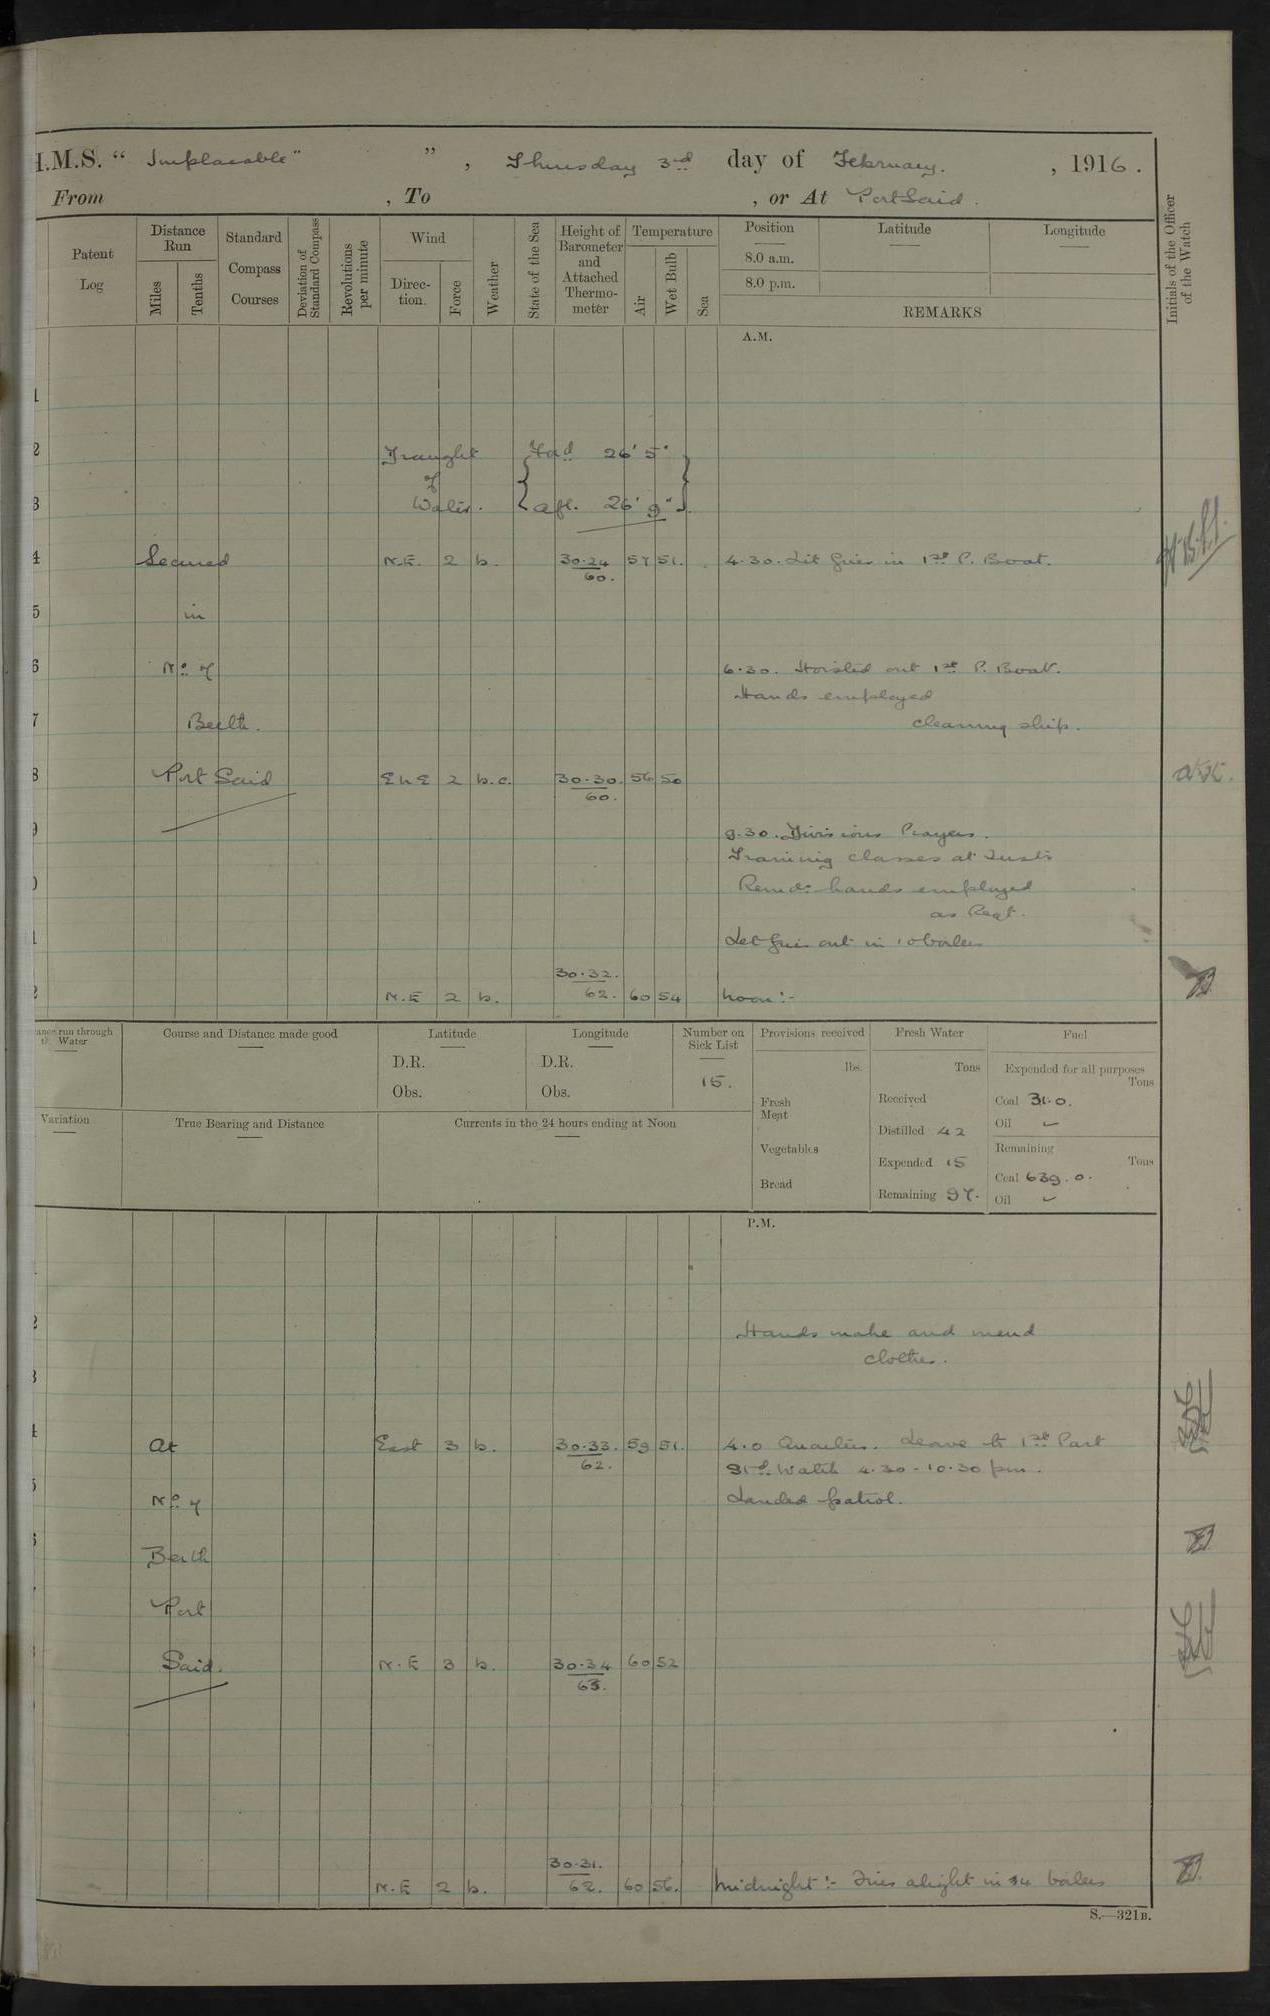 H.M.S. “ Implacable" ” , Thursday 3rd day of February. , 1916.
From , To , or At Port Said.
Patent Log
Distance Run
Miles
Tenths
Standard Compass Courses
Deviation of Standard Compass
Revolutions per minute
Wind
Direction.
Force
Weather
State of the Sea
Height of Barometer and Attached Thermometer
Temperature
Air
Wet Bulb
Sea
Position
8.0 a.m.
8.0 p.m.
Latitude
Longitude
REMARKS
Initials of the Officer of the Watch
A.M.
1
2
Draught { Ford 26' 5"
of
3 Water. Aft. 26' 9" }
4 Secured N.E. 2 b. 30.24 57 51. 4.30. Lit fires in 1st P. Boat.
60.
5 in
6 No 7 6.30. Hoisted out 1st P. Boat.
Hands employed
7 Berth. cleaning ship.
8 Port Said E N E 2 b.c. 30.30. 56 50
60.
9 9.30. Divisions Prayers.
Training classes at Insts
Remdr hands employed
as Reqt.
1 Let fires out in 10 boilers
30.32.
2 N.E 2 b. 62. 60 54 Noon:-
Distance run through the Water
Course and Distance made good
Latitude
D.R.
Obs.
Longitude
D.R.
Obs.
Number on Sick List
15.
Provisions received
lbs.
Fresh Meat
Vegetables
Bread
Fresh Water
Tons
Received
Distilled 42
Expended 15
Remaining 97.
Fuel
Expended for all purposes
Tons
Coal 31.0.
Oil ~
Remaining
Tons
Coal 639.0.
Oil ~
Variation
True Bearing and Distance
Currents in the 24 hours ending at Noon
P.M.
2
Hands make and mend
clothes.
3
4 At East 3 b. 30.33. 59 51. 4.0 Quarters. Leave to 1st Part
62. Std. Watch 4.30 - 10.30 pm.
5 No 7 Landed patrol.
Berth
Port
Said. N.E 3 b. 30.34 60 52
63.
30.31.
N.E 2 b. 62. 60 56. Midnight:- Fires alight in 4 boilers
S.—321B.